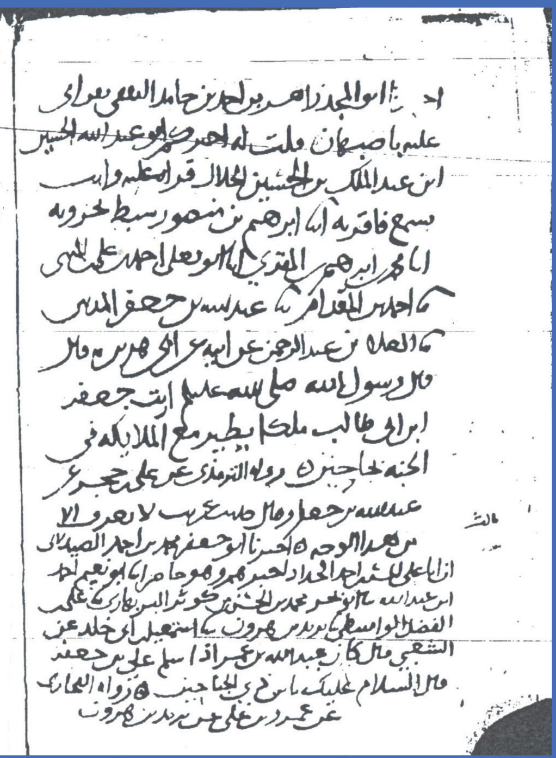 ابو المجد زاهر بن احمد بن حامد الثقفي بقراتي
عليه باصبهان قلت له اخبركم ابو عبد الله الحسين
ابن عبد الملك بن الحسين الخلال قراه عليه وانت
تسمع فاقر به انا ابرهيم بن منصور سبط بحرويه
انا محمد بن ابرهيم بن المقري انا ابو يعلى احمد بن علي
احمد بن المقدام نا عبد الله بن جعفر المديني
نا العلا بن عبد الرحمن عن ابيه عن ابي هريره قال
قال رسول الله صلى الله عليه رايت جعفر
ابن ابي طالب ملكا يطير مع الملايكه في
الجنه بجناحين رواه الترمذي عن علي بن حجر عن
عبد الله بن جعفر وقال حديث غريب لا نعرفه الا
من هذا الوجه اخبرنا ابو جعفر محمد بن احمد الصيدلاني
ان ابا علي الحسن بن احمد الحداد اخبرهم وهو حاضر انا ابو نعيم احمد
ابن عبد الله نا ابو بحر محمد بن الحسن بن كوثر البربهاري نا علي بن
الفضل الواسطي نا يزيد بن هرون نا اسمعيل بن ابي خالد عن
الشعبي قال كان عبد الله بن عمر اذا سلم على بن جعفر
قال السلام عليك يا بن ذي الجناحين رواه البخاري
عن عمرو بن علي عن يزيد بن هرون